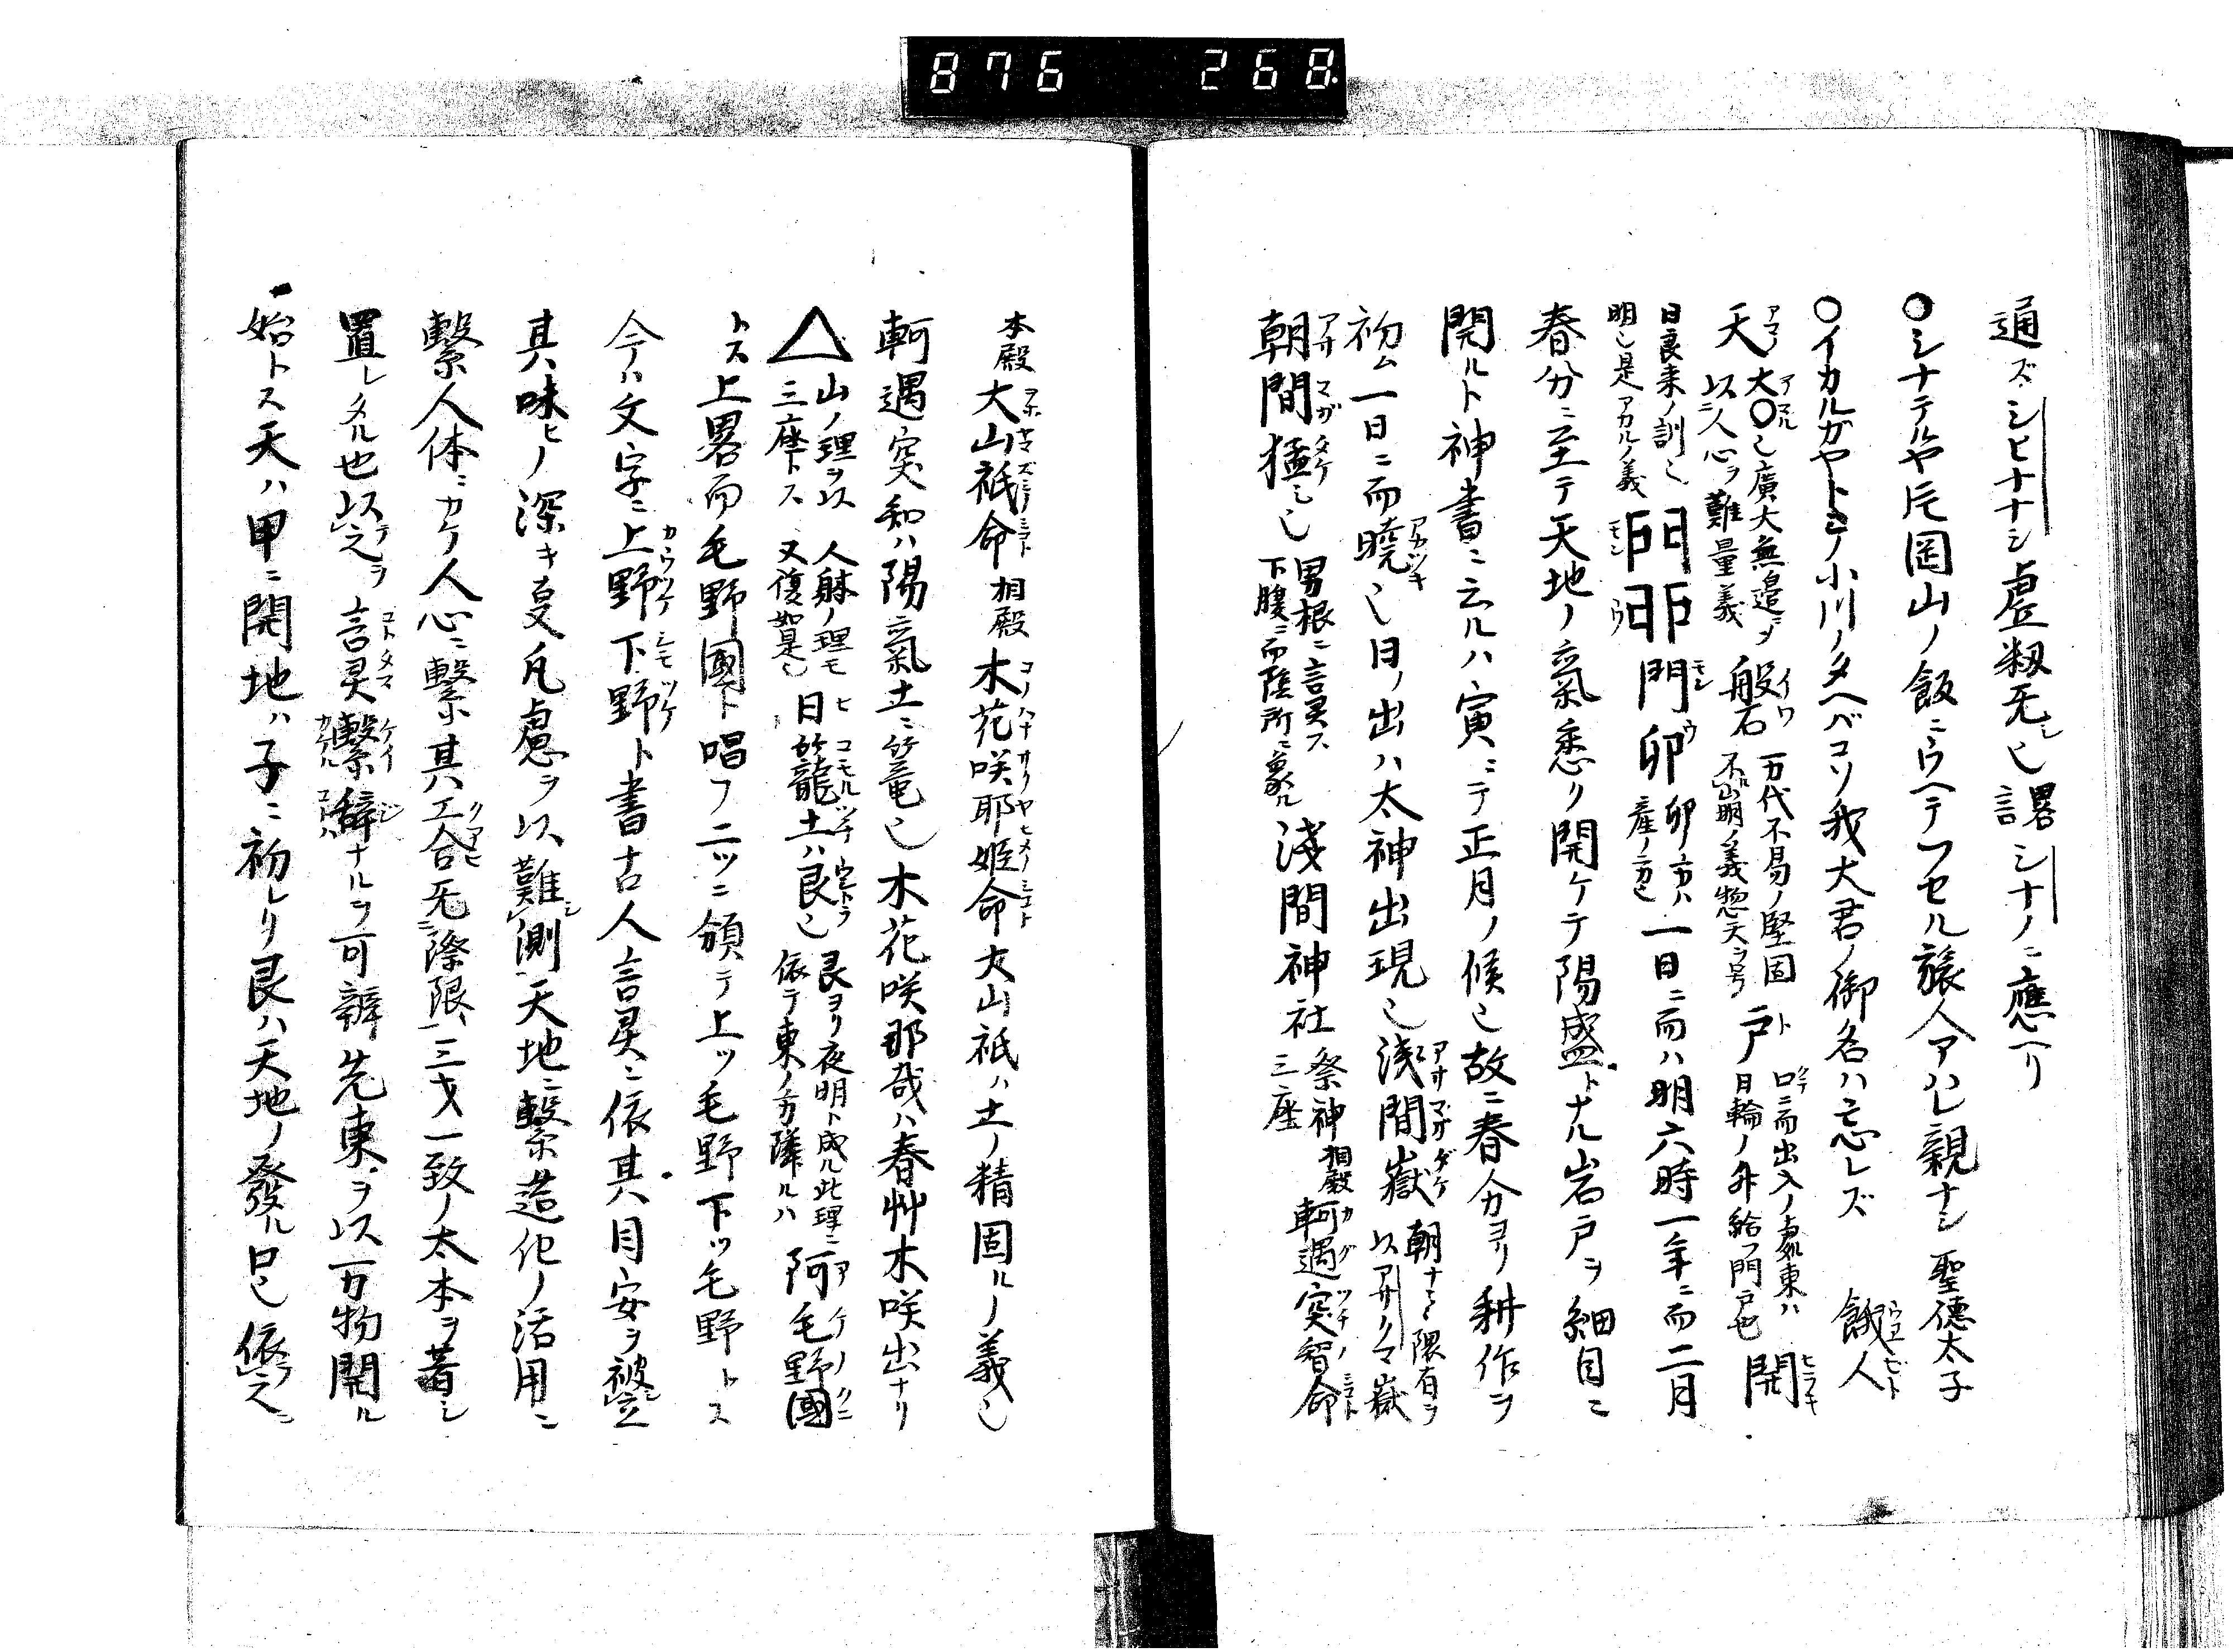 876 268.
通ズシヒナナシ虚籾无シ也畧言シナノニ應ヘリ
○シナテルヤ片岡山ノ飯ニウヘテフセル旅人アハレ親ナシ 聖德太子
○イカルガヤトミノ小川ノタヘバコソ我大君ノ御名ハ忘レズ 餓人
天 大○也廣大無邉ニヲ以テ人心ヲ難量義 般石 万代不易ノ堅固不山明ノ義惣天ヲ号フ 戸 口ニ而出入ノ處東ハ日輪ノ外給フ門戸也 開
日良来ノ訓也 明也是アカルノ義 門卯 門 卯 卯ノ方ハ産ノ方也 一日ニ而ハ明六時一年ニ而二月
春分ニ至テ天地ノ氣悉ク開ケテ陽盛トナル岩戸ヲ細目ニ
開ルト神書ニ云ルハ寅ニテ正月ノ候也故ニ春分ヨリ耕作ヲ
初ム一日ニ而曉也日ノ出ハ太神出現也淺間嶽 朝ナ〻隈有ヲ以アサクマ嶽
朝間猛シ也 男根ニ言灵ス下腹ニ而陰所ニ象ル 淺間神社 祭神三座 相殿 軻遇突智命
本殿 大山祇命 相殿 木花咲耶姫命大山祇ハ土ノ精固ルノ義也
軻遇突知ハ陽氣土ニ篭也木花咲耶哉ハ春艸木咲出ナリ
△ 山ノ理ヲ以三座トス 人躰ノ理モ又復如是也 日篭土ハ艮也 艮ヨリ夜明ト成ル此理ニ依テ東ノ方隣ルハ 阿毛野國
トス上畧而毛野國ト唱フ二ツニ頒テ上ツ毛野下ツ毛野トス
今ハ文字ニ上野下野ト書古人言灵ニ依其目安ヲ被立
其味ヒノ深キ㕝凡慮ヲ以難測天地ニ繫造化ノ活用ニ
繫人体ニカケ人心ニ繫其工合无際限三才一致ノ太本ヲ著シ
置レタル也以之ヲ言灵繫辞ナルヲ可辨先東ヲ以万物開ル
始トス天ハ甲ニ開地ハ子ニ初レリ艮ハ天地ノ發ル日也依之ニ